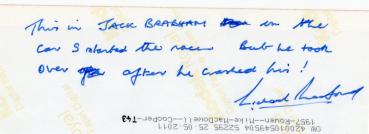 This is JACK BRABHAM in the
car I started the race But he took
over after he crashed his !
OW 420010549504 52295 25 05 2011
1957-Rouen--Mike-MacDowell--Cooper-T43